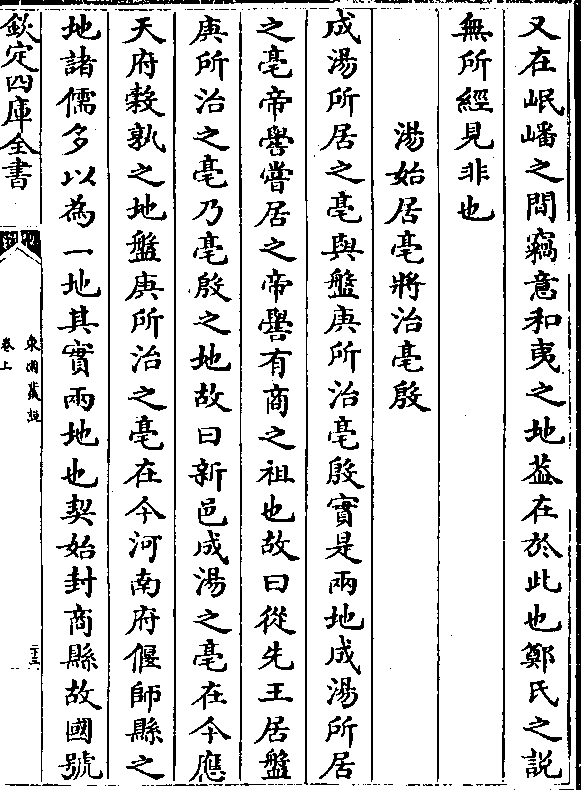 又在岷嶓之間竊意和夷之地葢在於此也鄭氏之説
無所經見非也
湯始居亳將治亳殷
成湯所居之亳與盤庚所治亳殷實是兩地成湯所居
之亳帝嚳嘗居之帝嚳有商之祖也故曰從先王居盤
庚所治之亳乃亳殷之地故曰新邑成湯之亳在今應
天府榖孰之地盤庚所治之亳在今河南府偃師縣之
地諸儒多以為一地其實兩地也契始封商縣故國號
欽定四庫全書
卷上
二十三